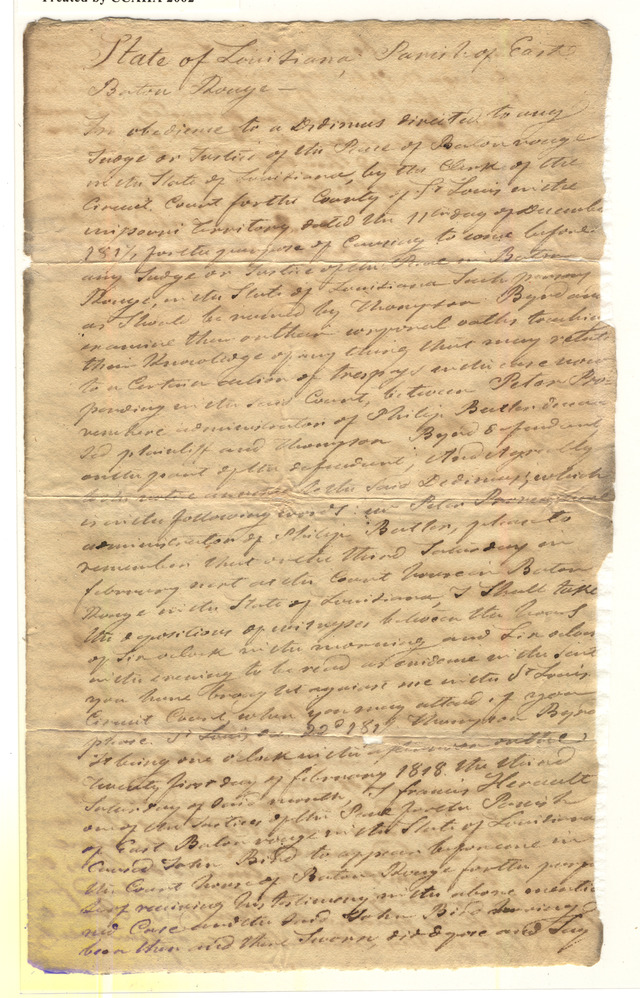 State of Louisiana Parish of East
Baton Rouge —
In obedience to a Dedimus directed to any
Judge or Justice of the Peace of Baton rouge
in the State of Louisiana, by the Clerk of the
Circuit Court for the County of St Louis in the
missouri Territory, dated the 11th day of December
for the purpose of Causing to come before
any Judge or Justice of the Peace in Baton
Rouge, in the State of Louisiana Such persons
as Should be named by Thompson Byrd and
examine them on their corporal oaths touching
their Knowledge of any thing that may relate
to a Certain action of trespass on the case now
pending in the said Court, between Peter
administrator of Philip Butler
plaintiff and Thompson Byrd defendant
on the part of the defendant; And Agreeably
to the said Dedimus, which
is in the following words: Mr Peter
administrator of Philip Butler, please to
remember that on the third Saturday in
february next at the Court house in Baton
Rouge in the State of Louisiana I Shall take
the depositions of witnesses between the hours
of Six oclock in the morning and Six oclock
in the evening to be read as evidence in the suit
you have brought against me in the St Louis
Circuit Court, when you may attend if you
please. St Louis 22d Thompson Byrd
It being one oclock in the afternoon on the
Twenty first day of february 1818. the third
Saturday of Said month, I francis Herault
one of the Justices of the Peace for the Parish
of East Baton rouge in the State of Louisiana
Caused John Bird to appear before me in
the Court house of Baton Rouge for the purpo
se of receiving his testimony in the above mentio
ned Case and the Said John Bird having
been then and there Sworn, did depose and Say